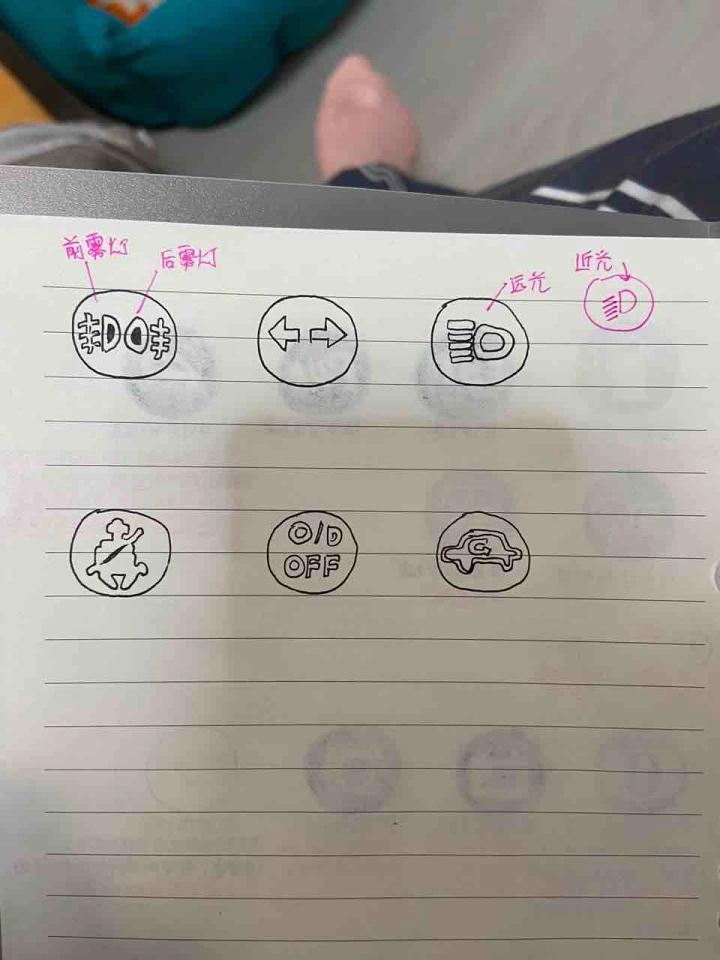 前雾灯
后雾灯
远光
近光
O/D
OFF